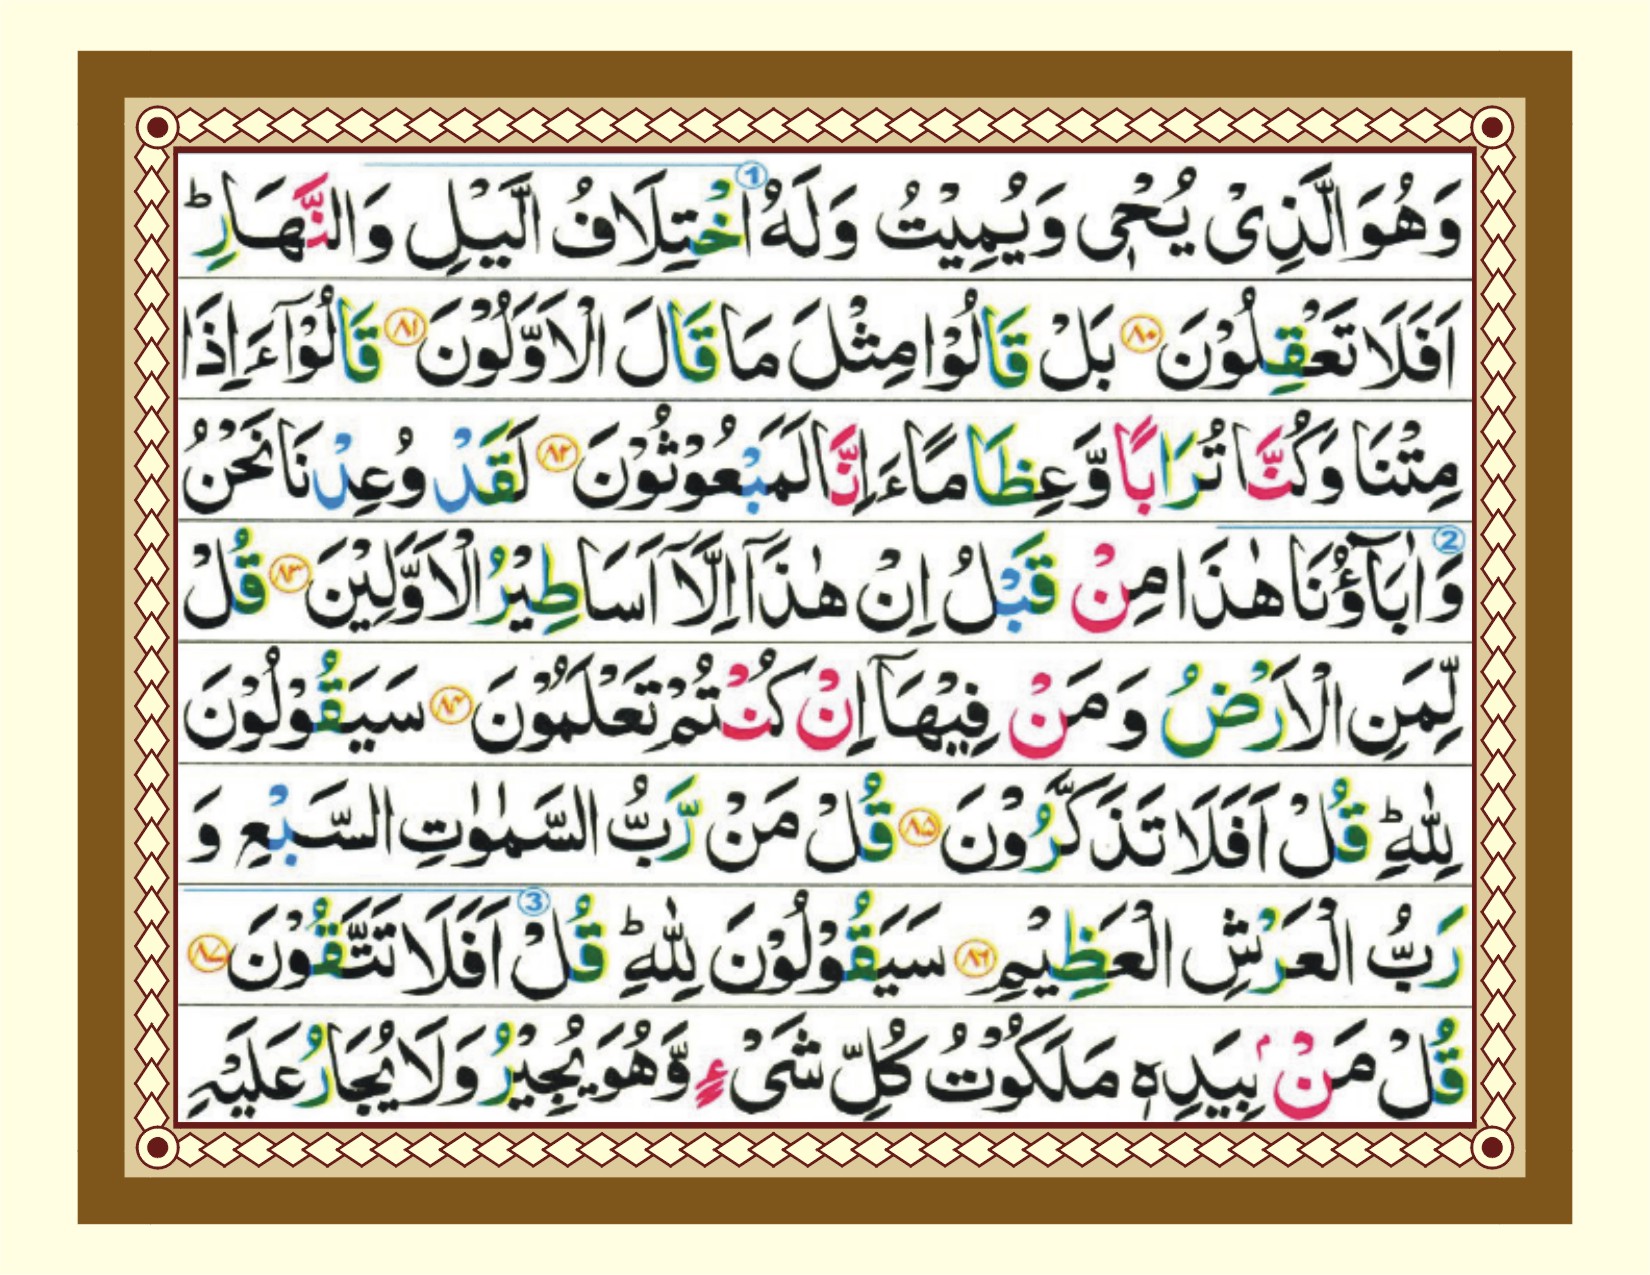 وَهُوَ الَّذِیْ یُحْیٖ وَیُمِیْتُ وَلَهُ ① اخْتِلَافُ الَّیْلِ وَالنَّهَارِ ؕ
اَفَلَا تَعْقِلُوْنَ ۸۰ بَلْ قَالُوْا مِثْلَ مَا قَالَ الْاَوَّلُوْنَ ۸۱ قَالُوْۤا ءَاِذَا
مِتْنَا وَكُنَّا تُرَابًا وَّعِظَامًا ءَاِنَّا لَمَبْعُوْثُوْنَ ۸۲ لَقَدْ وُعِدْنَا نَحْنُ
② وَاٰبَآؤُنَا هٰذَا مِنْ قَبْلُ اِنْ هٰذَاۤ اِلَّاۤ اَسَاطِیْرُ الْاَوَّلِیْنَ ۸۳ قُلْ
لِّمَنِ الْاَرْضُ وَمَنْ فِیْهَاۤ اِنْ كُنْتُمْ تَعْلَمُوْنَ ۸۴ سَیَقُوْلُوْنَ
لِلّٰهِ ؕ قُلْ اَفَلَا تَذَكَّرُوْنَ ۸۵ قُلْ مَنْ رَّبُّ السَّمٰوٰتِ السَّبْعِ وَ
رَبُّ الْعَرْشِ الْعَظِیْمِ ۸۶ سَیَقُوْلُوْنَ لِلّٰهِ ؕ قُلْ ③ اَفَلَا تَتَّقُوْنَ ۸۷
قُلْ مَنْۢ بِیَدِهٖ مَلَكُوْتُ كُلِّ شَیْءٍ وَّهُوَ یُجِیْرُ وَلَا یُجَارُ عَلَیْهِ